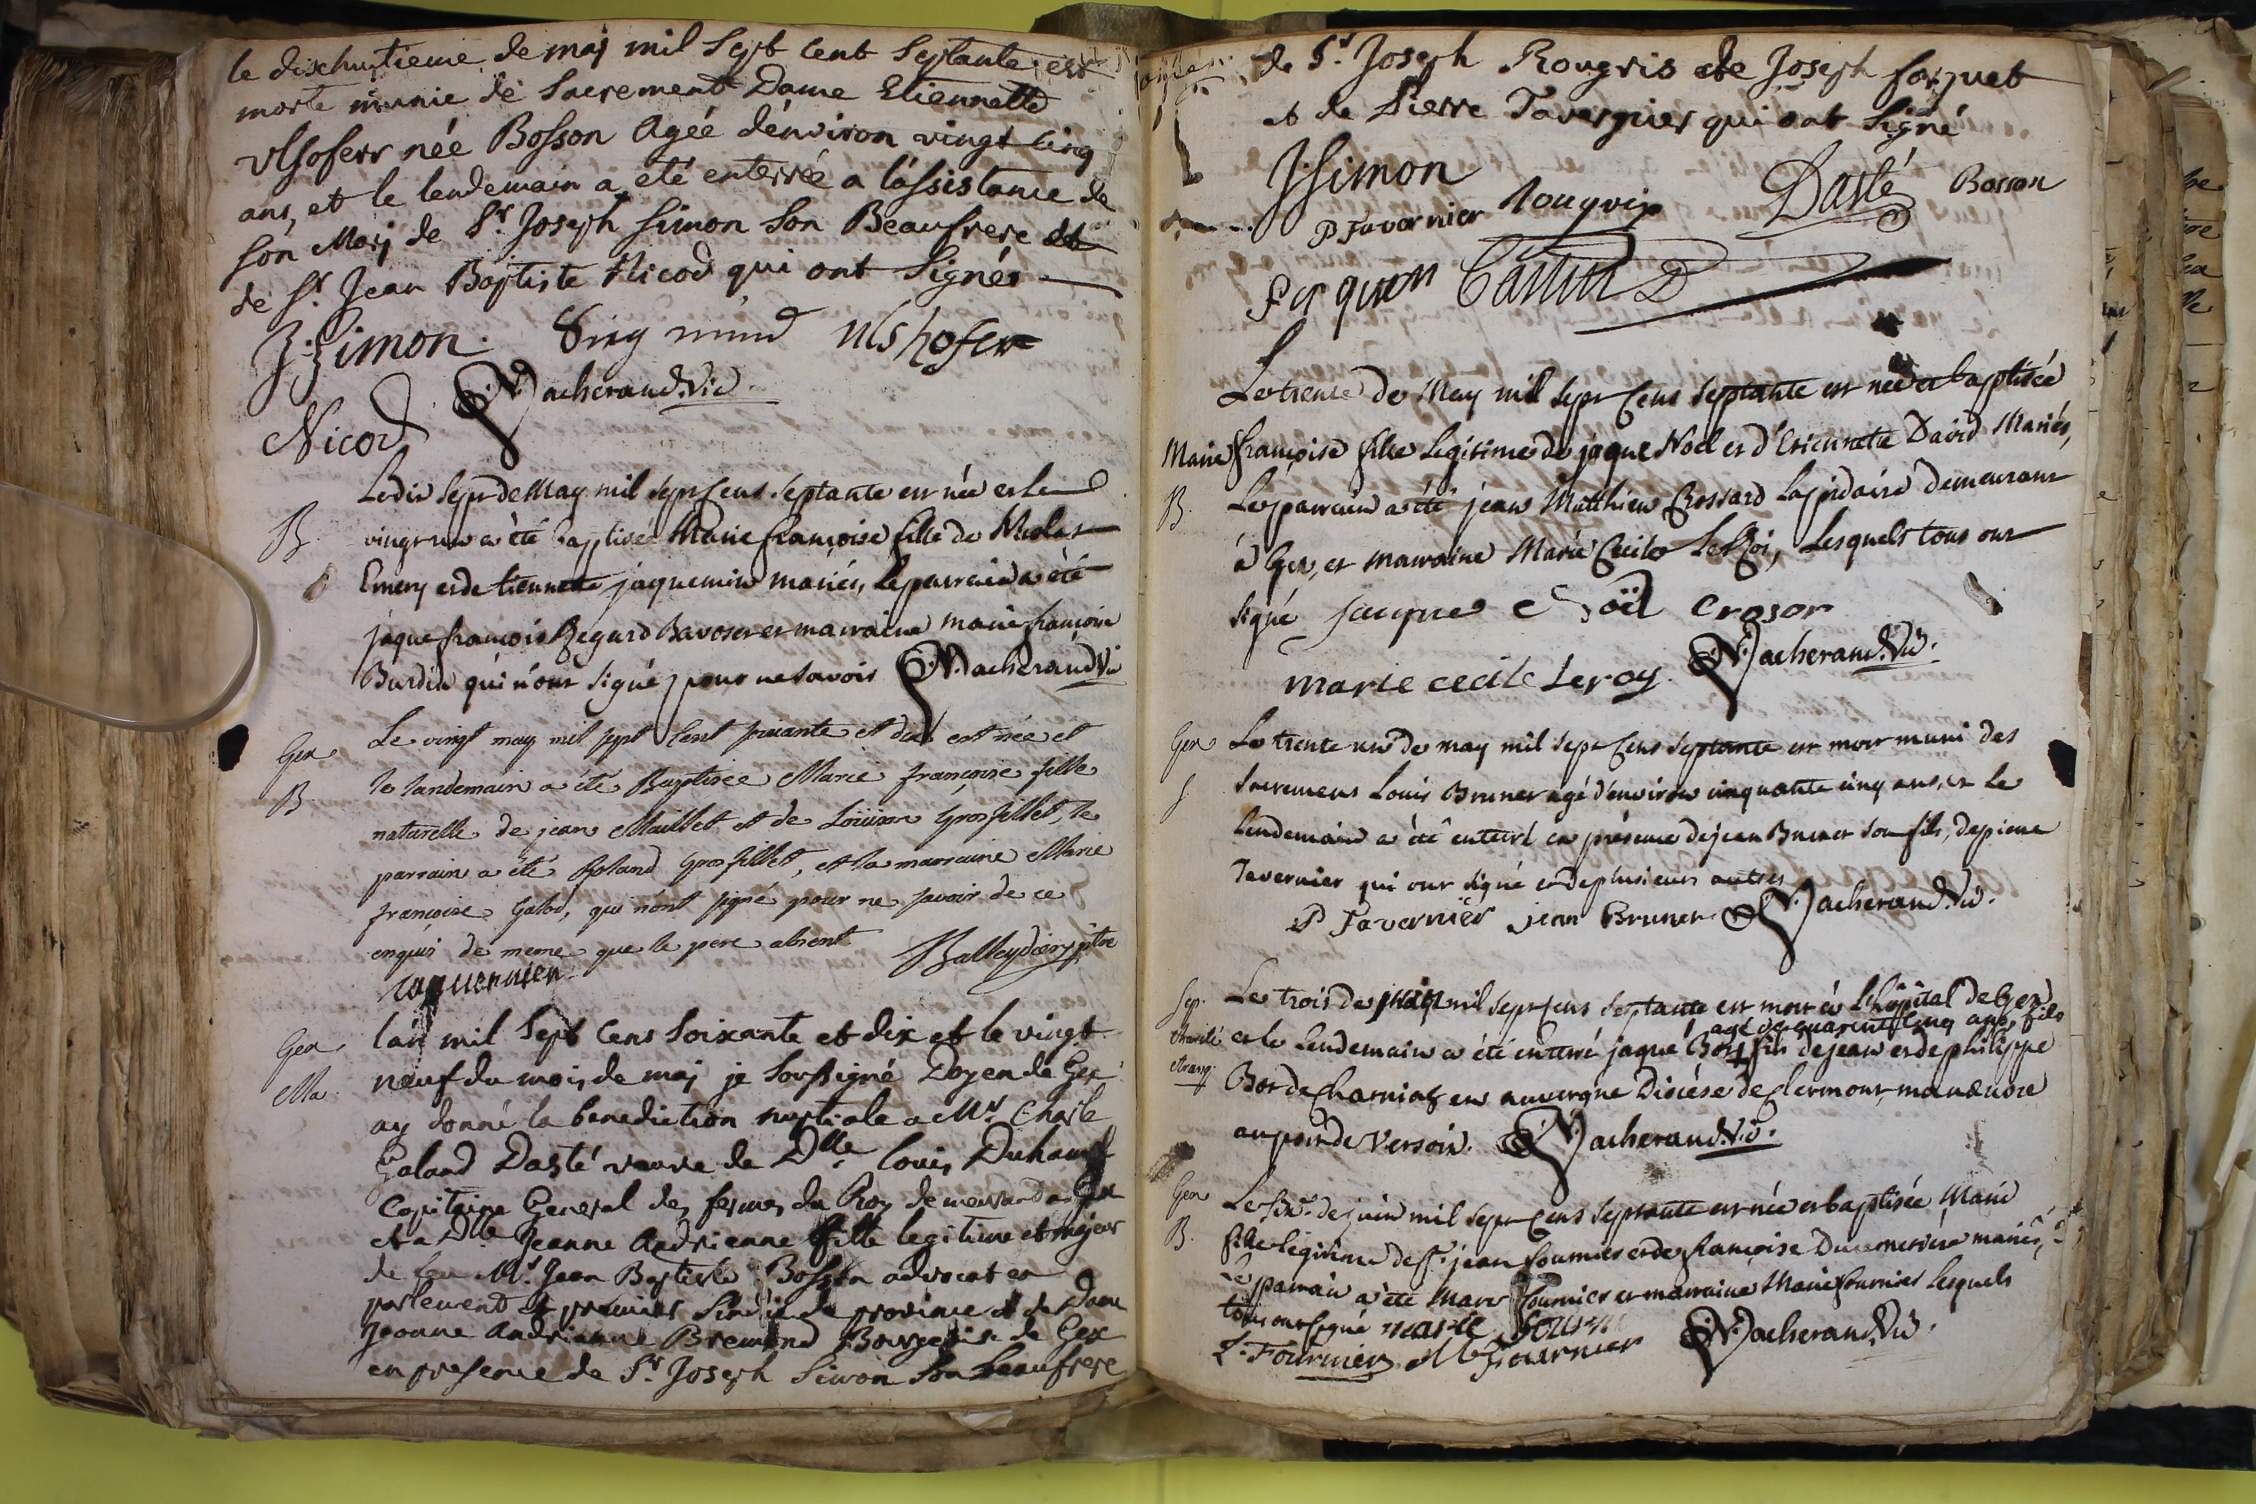 le dixhuitieme de maj mil Sept Cent Septante est
morte munie de Sacrement Dame Etiennette
Ulsoferr née Bosson Agéé d'environ vingt cinq
ans, et le lendemain a eté enterrée a l'assistance de
son Marj de Sr. Joseph Simon Son Beaufrere et
de Sr. Jean Baptiste Nicod qui ont Signés
J: Simon. Ulshofer
Nicod N. Vacherand. Vic.
Le dix Sept de May mil Sept Cens Septante est née et le
B. vingt un a été baptisée Marie françoise fille de Nicolas
Emery et de tiennette jaquemin mariés, le parrain a été
jaque françois Regard Bavoser et marraine marie françoise
Burdin qui n'ont signé pour ne savoir N. Vacherand Vic
Gex Le vingt may mil sept Cent soixante et dix est née et
B. le landemain a été Baptisée Marie françoise fille
naturelle de jean Maillet et de Loüison Grosfillet, le
parrain a été Roland Grosfillet, et la marraine Marie
françoise Galod, qui n'ont signé pour ne savoir de ce
enquis de meme que le pere absent Balleydier ptre
Gex l'an mil Sept Cens Soixante et dix et le vingt
Ma. neuf du mois de maj je Soussigné Doyen de Gex
ay donné la benediction nuptiale a Mr. Charle
Galand Dasté veuve de Dlle. Louis Duhamel
Capitaine General des fermes du Roy demeurand a Gex
et a Dlle Jeanne Andrienne fille legitime et majeur
de feu Mr. Jean Baptiste Bosson advocat en
parlement et premier Sindic de province et de Dame
Jeanne Andrienne Bremond Bourgeoise de Gex
en presence de Sr. Joseph Simon Son beaufrere
de Sr. Joseph Rougris de Joseph forquet
et de Pierre Tavernier qui ont Signé
J: Simon Dasté Bosson
P Tavernier Rougris
Le trente de May mil Sept Cens Septante est née et baptisée
Marie françoise fille Legitime de jaque Noël et d'Etiennette David Mariés,
B. Le parrain a été jean Matthieu Crossard Lapidaire demeurant
à Gex, et marraine Marie Cecile Le Roi, Lesquels tous ont
signé jaque Noël Crosor
marie cecile Leroy. N. Vacherand. Vic.
Gex Le trente un de may mil Sept Cens Septante est mort muni des
S Sacremens Louis Bruner agé d'environ cinquante cinq ans, et Le
Lendemain a été enterré en présence de jean Bruner son fils, de pierre
Tavernier qui ont signé et de plusieurs autres
P Tavernier jean Bruner N. Vacherand. Vic.
Sep. Le trois de mil Sept Cens Septante est mort à L'hôpital de Gex
agé de quarente cinq ans, fils
charité et le Lendemain a été enterré jaque Bor fils de jean et de philippe
etrang. Bor de Charniat en auvergne Diocése de Clermont, manœuvre
au port de Versoix. N. Vacherand. Vic.
Gex Le Six de juin mil Sept Cens Septante est née et baptisée Marie
B. fille Legitime de Sr. jean fournier et de françoise mariés,
Le parrain a été Marc fournier et marraine Marie fournier Lesquels
tous ont signé marc fourni
fournier N. Vacherand. Vic.